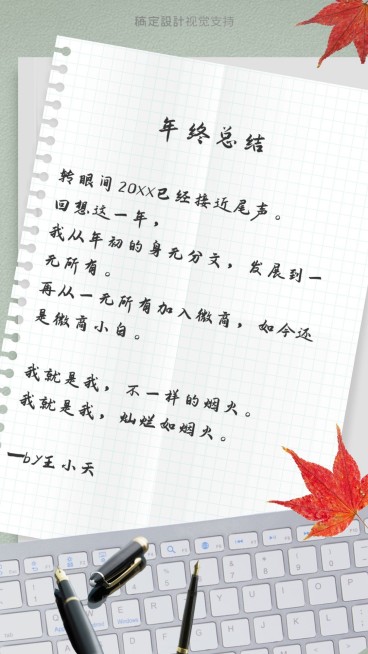 搞定設計视觉支持
年终总结
转眼间20XX已经接近尾声。
回想这一年，
我从年初的身无分文，发展到一
无所有。
再从一无所有加入微商，如今还
是微商小白。
我就是我，不一样的烟火。
我就是我，灿烂如烟火。
—by王小天